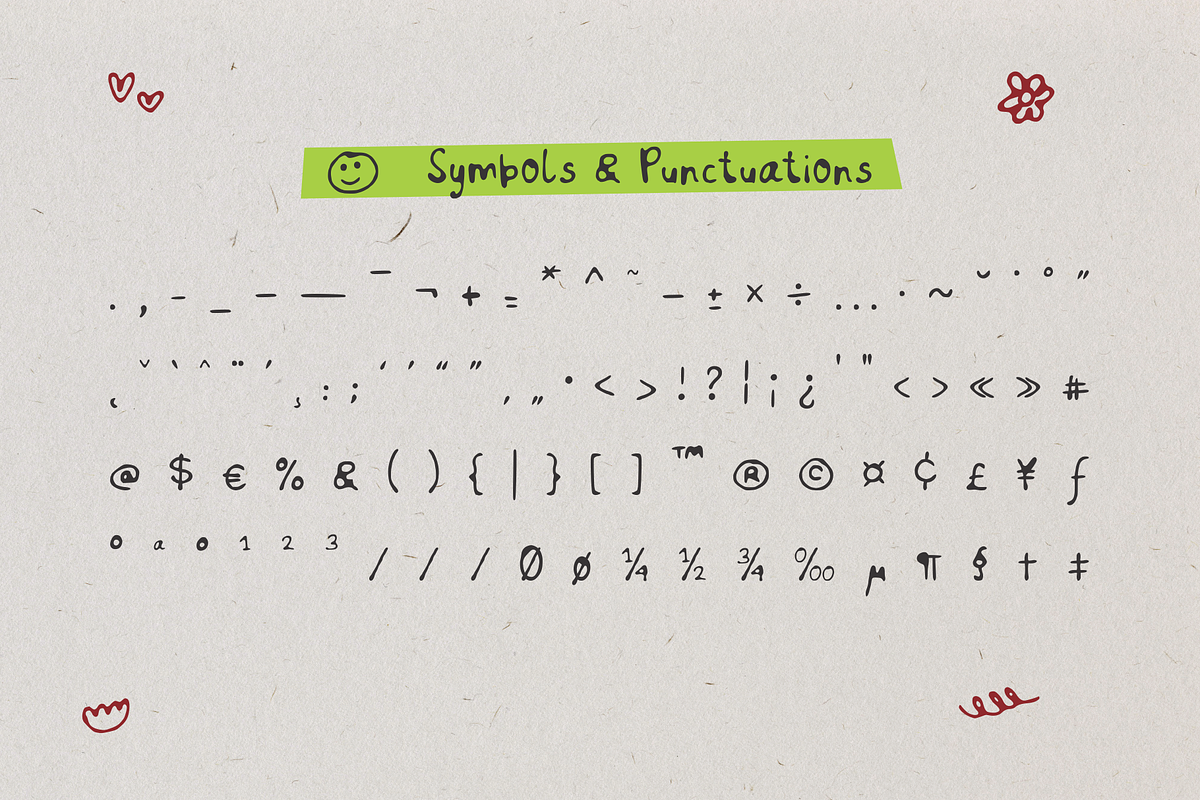 Symbols & Punctuations
. , - _ – — ¯ ¬ + = * ^ ˜ − ± × ÷ … · ~ ˘ ˙ ˚ ˝
˛ ˇ ` ˆ ¨ ´ ¸ : ; ‘ ’ “ ” ‚ „ • < > ! ? ¦ ¡ ¿ ' " ‹ › « » #
@ $ € % & ( ) { | } [ ] ™ ® © ¤ ¢ £ ¥ ƒ
° ª º ¹ ² ³ / / / Ø ø ¼ ½ ¾ ‰ µ ¶ § † ‡